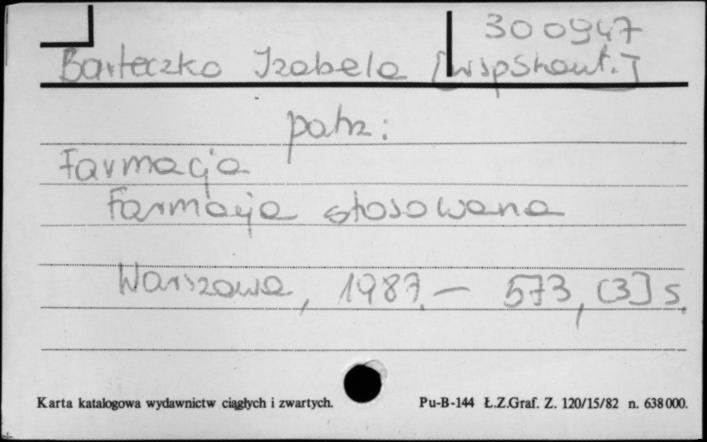 300947
Barteczko Izabela [współaut.]
patrz:
Farmacja
Farmacja stosowana
Warszawa, 1987. — 573, [3] s.
Karta katalogowa wydawnictw ciągłych i zwartych. Pu-B-144 Ł.Z.Graf. Z. 120/15/82 n. 638000.